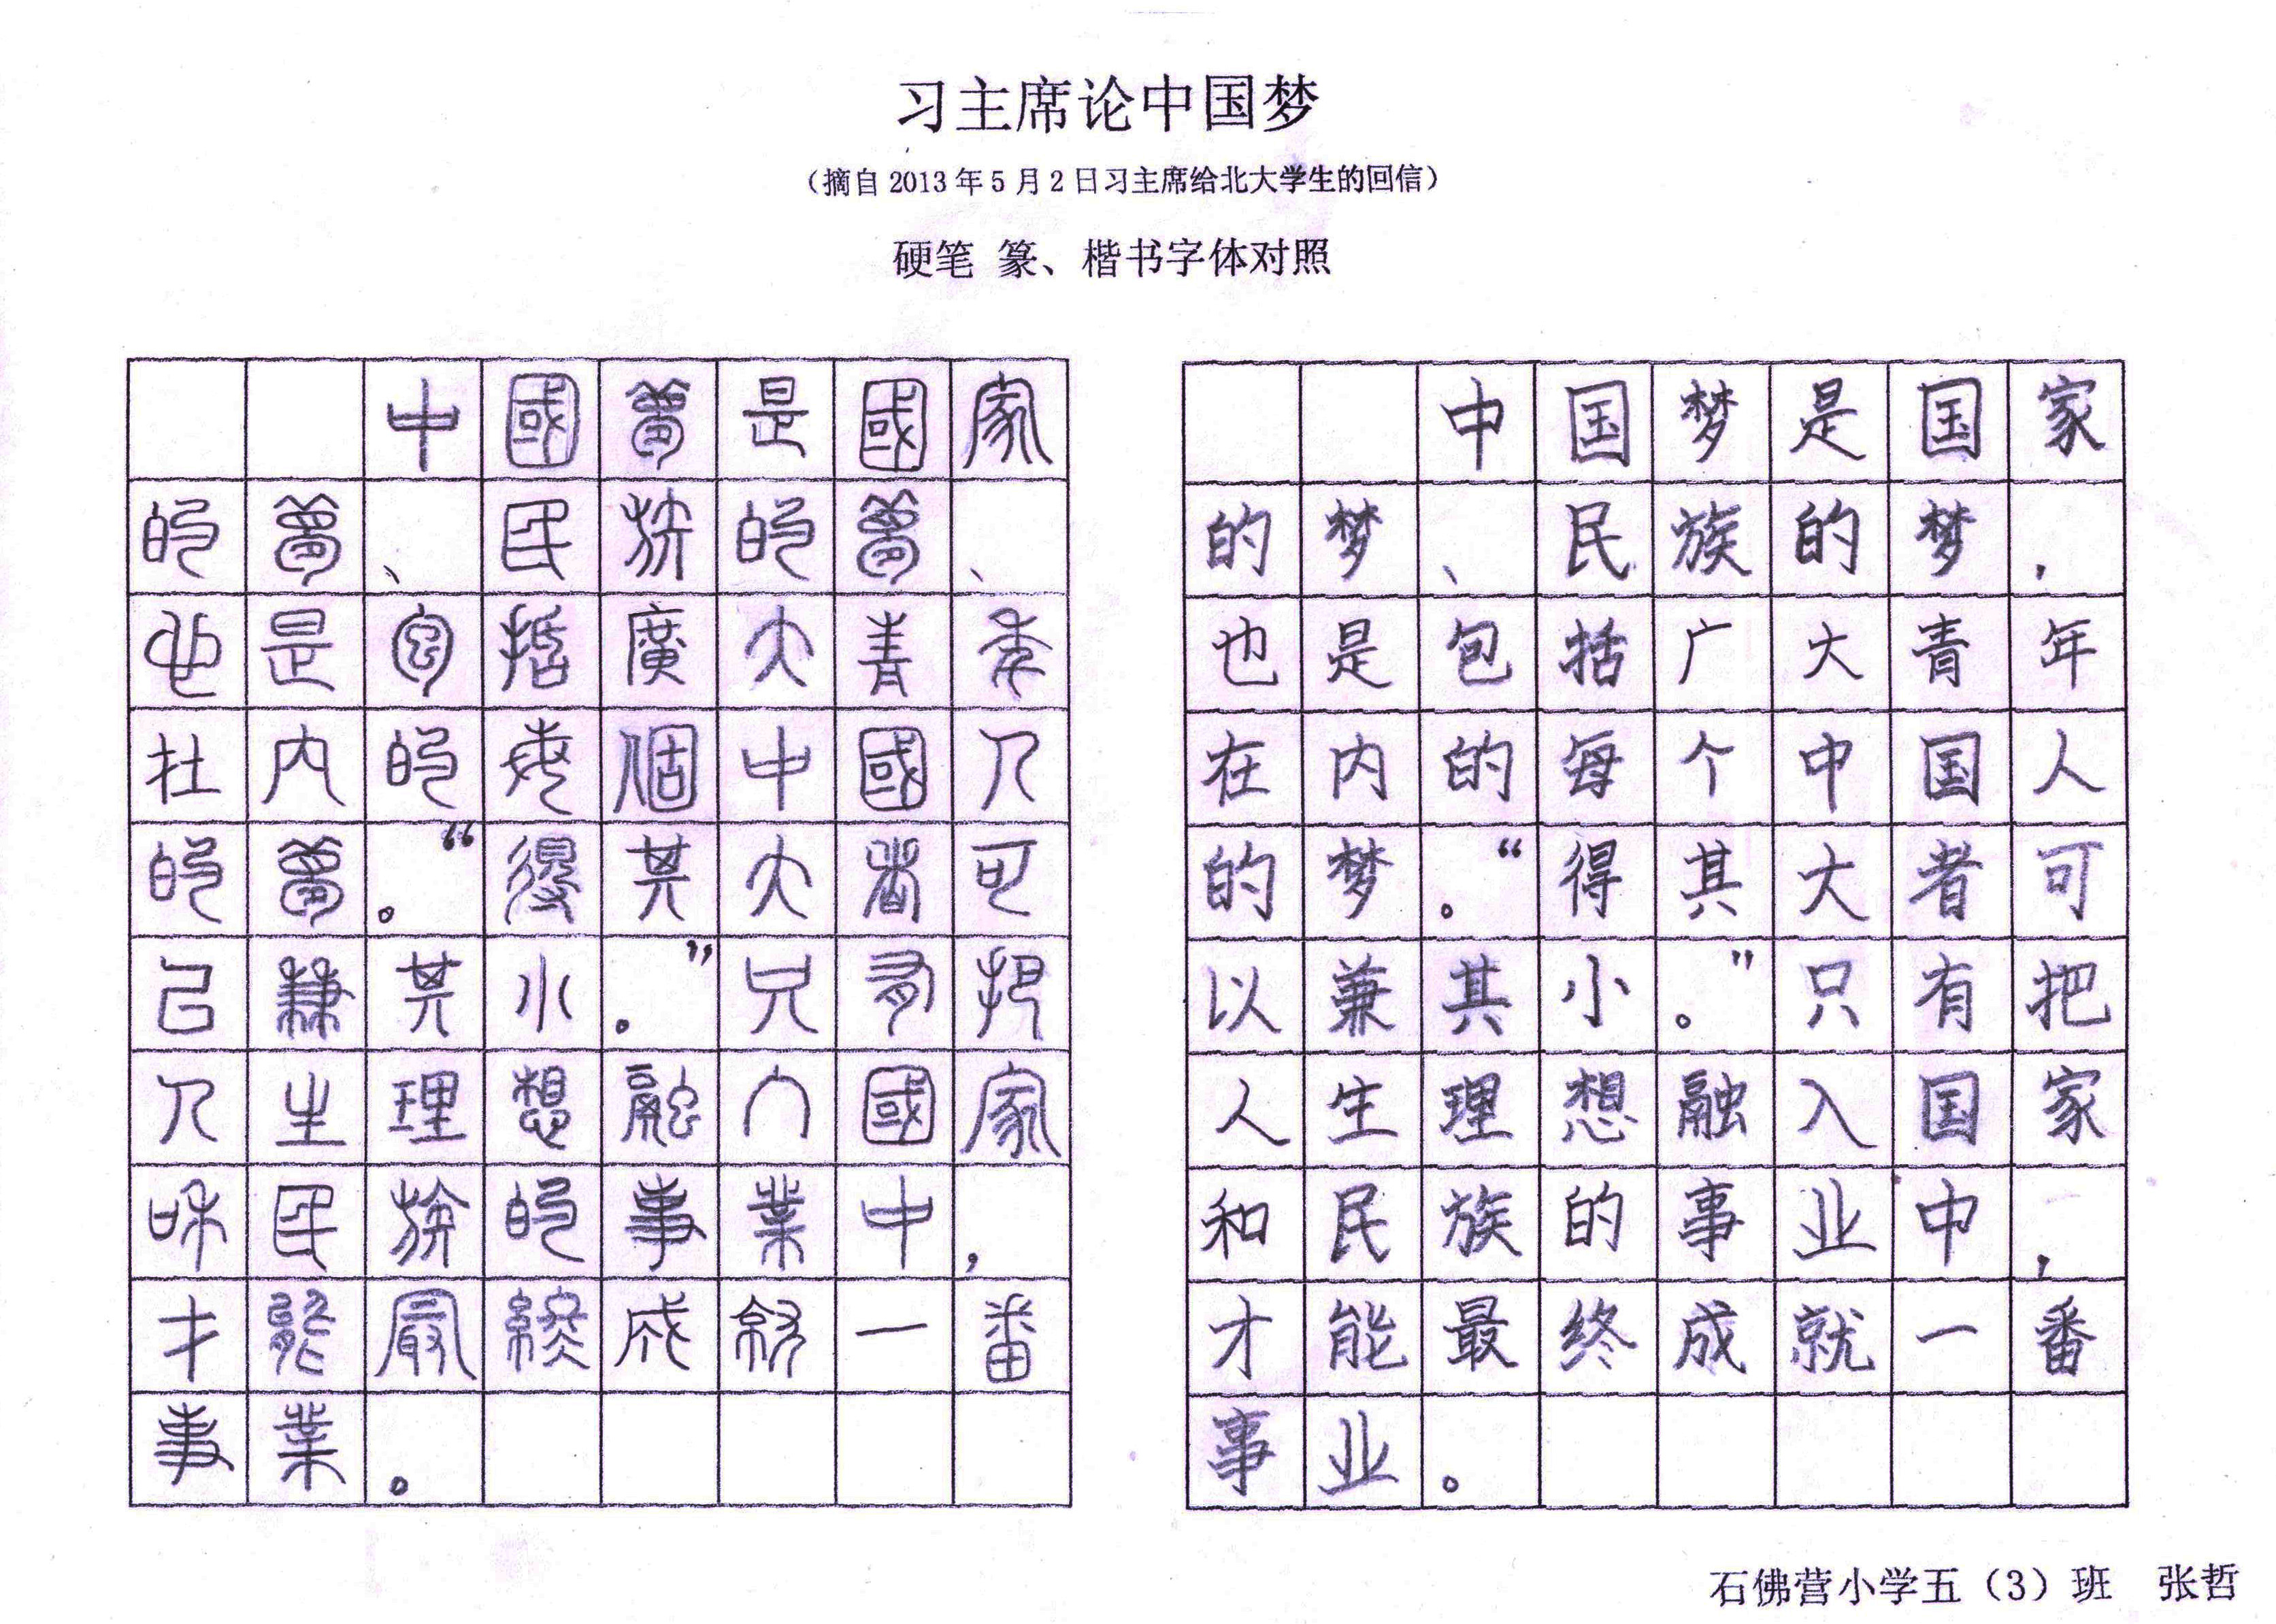 习主席论中国梦
（摘自 2013 年 5 月 2 日习主席给北大学生的回信）
硬笔 篆、楷书字体对照
中國夢是國家
的夢、民族的夢、
也是包括廣大青年
在内的每個中國人
的夢。“得其大者可
以兼其小。”只有把
人生理想融入國家
和民族的事業中，
才能最終成就一番
事業。
中国梦是国家
的梦、民族的梦，
也是包括广大青年
在内的每个中国人
的梦。“得其大者可
以兼其小。”只有把
人生理想融入国家
和民族的事业中，
才能最终成就一番
事业。
石佛营小学五（3）班 张哲